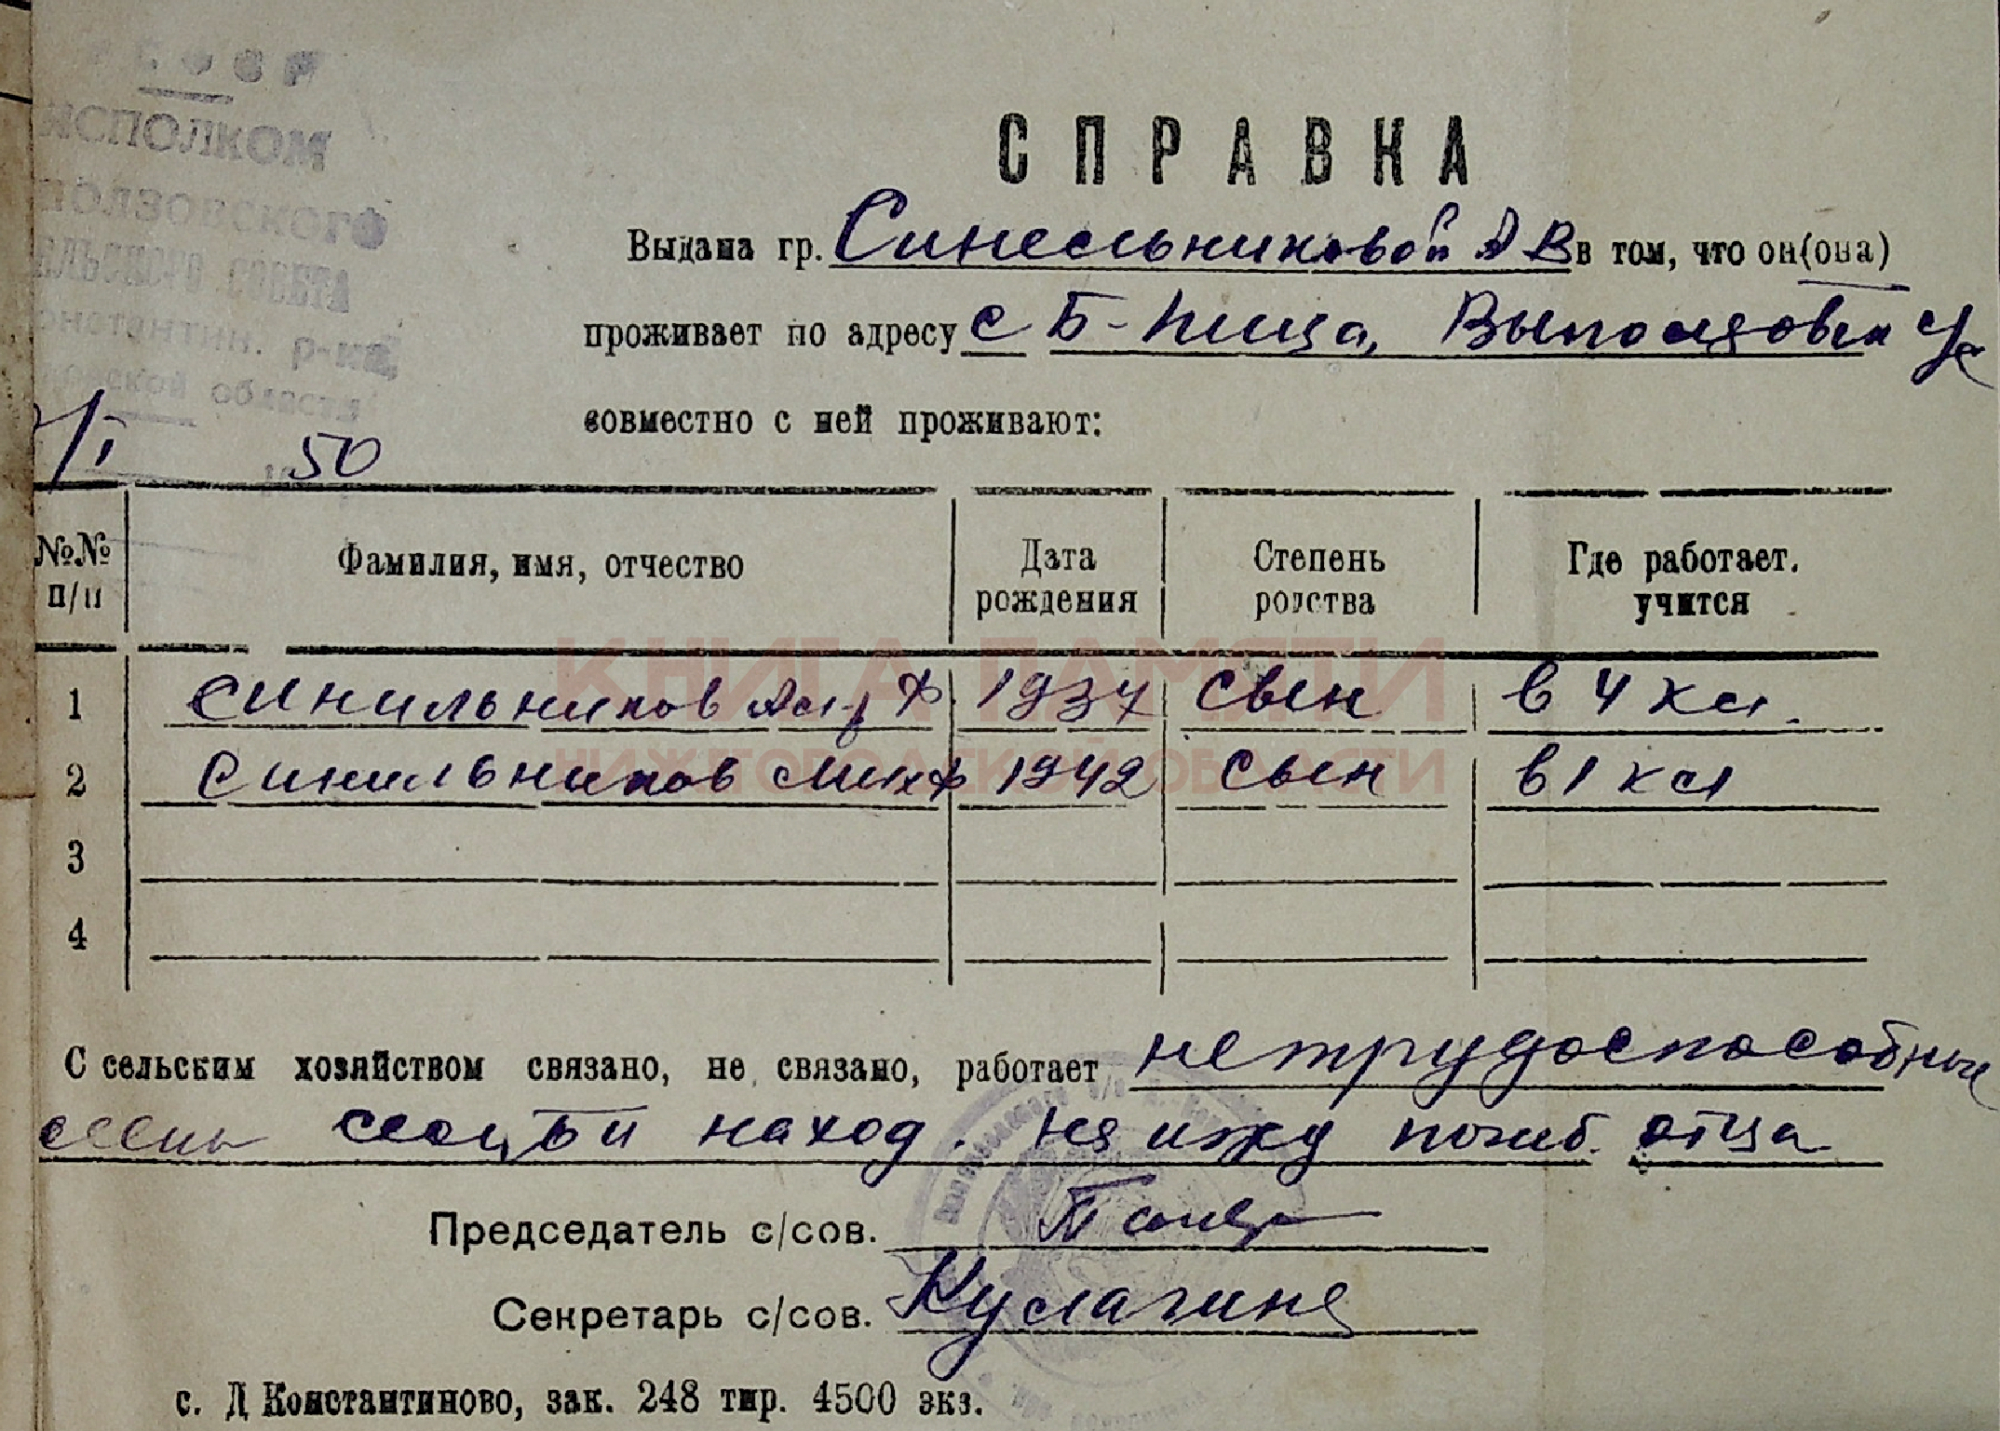 РСФСР
ИСПОЛКОМ
ПОЛЗОВСКОГО
ЕЛЬСКОГО СОВЕТА
онстантин. р-на,
овской области
/I 50
СПРАВКА
Выдана гр. Синельниковой А В в том, что он(она)
проживает по адресу с Б-Пица, Выползовск с/с
совместно с ней проживают:
№№ п/п
Фамилия, имя, отчество
Дата рождения
Степень родства
Где работает. учится
1 Синильников Ал-р Ф 1937 сын в 4 кл.
2 Синильников Мих Ф 1942 сын в 1 кл
3
4
КНИГА ПАМЯТИ
НИЖЕГОРОДСКОЙ ОБЛАСТИ
С сельским хозяйством связано, не связано, работает нетрудоспособные
члены семьи наход. на ижд погиб. отца
Председатель с/сов.
Секретарь с/сов. Кулагина
с. Д Константиново, зак. 248 тир. 4500 экз.